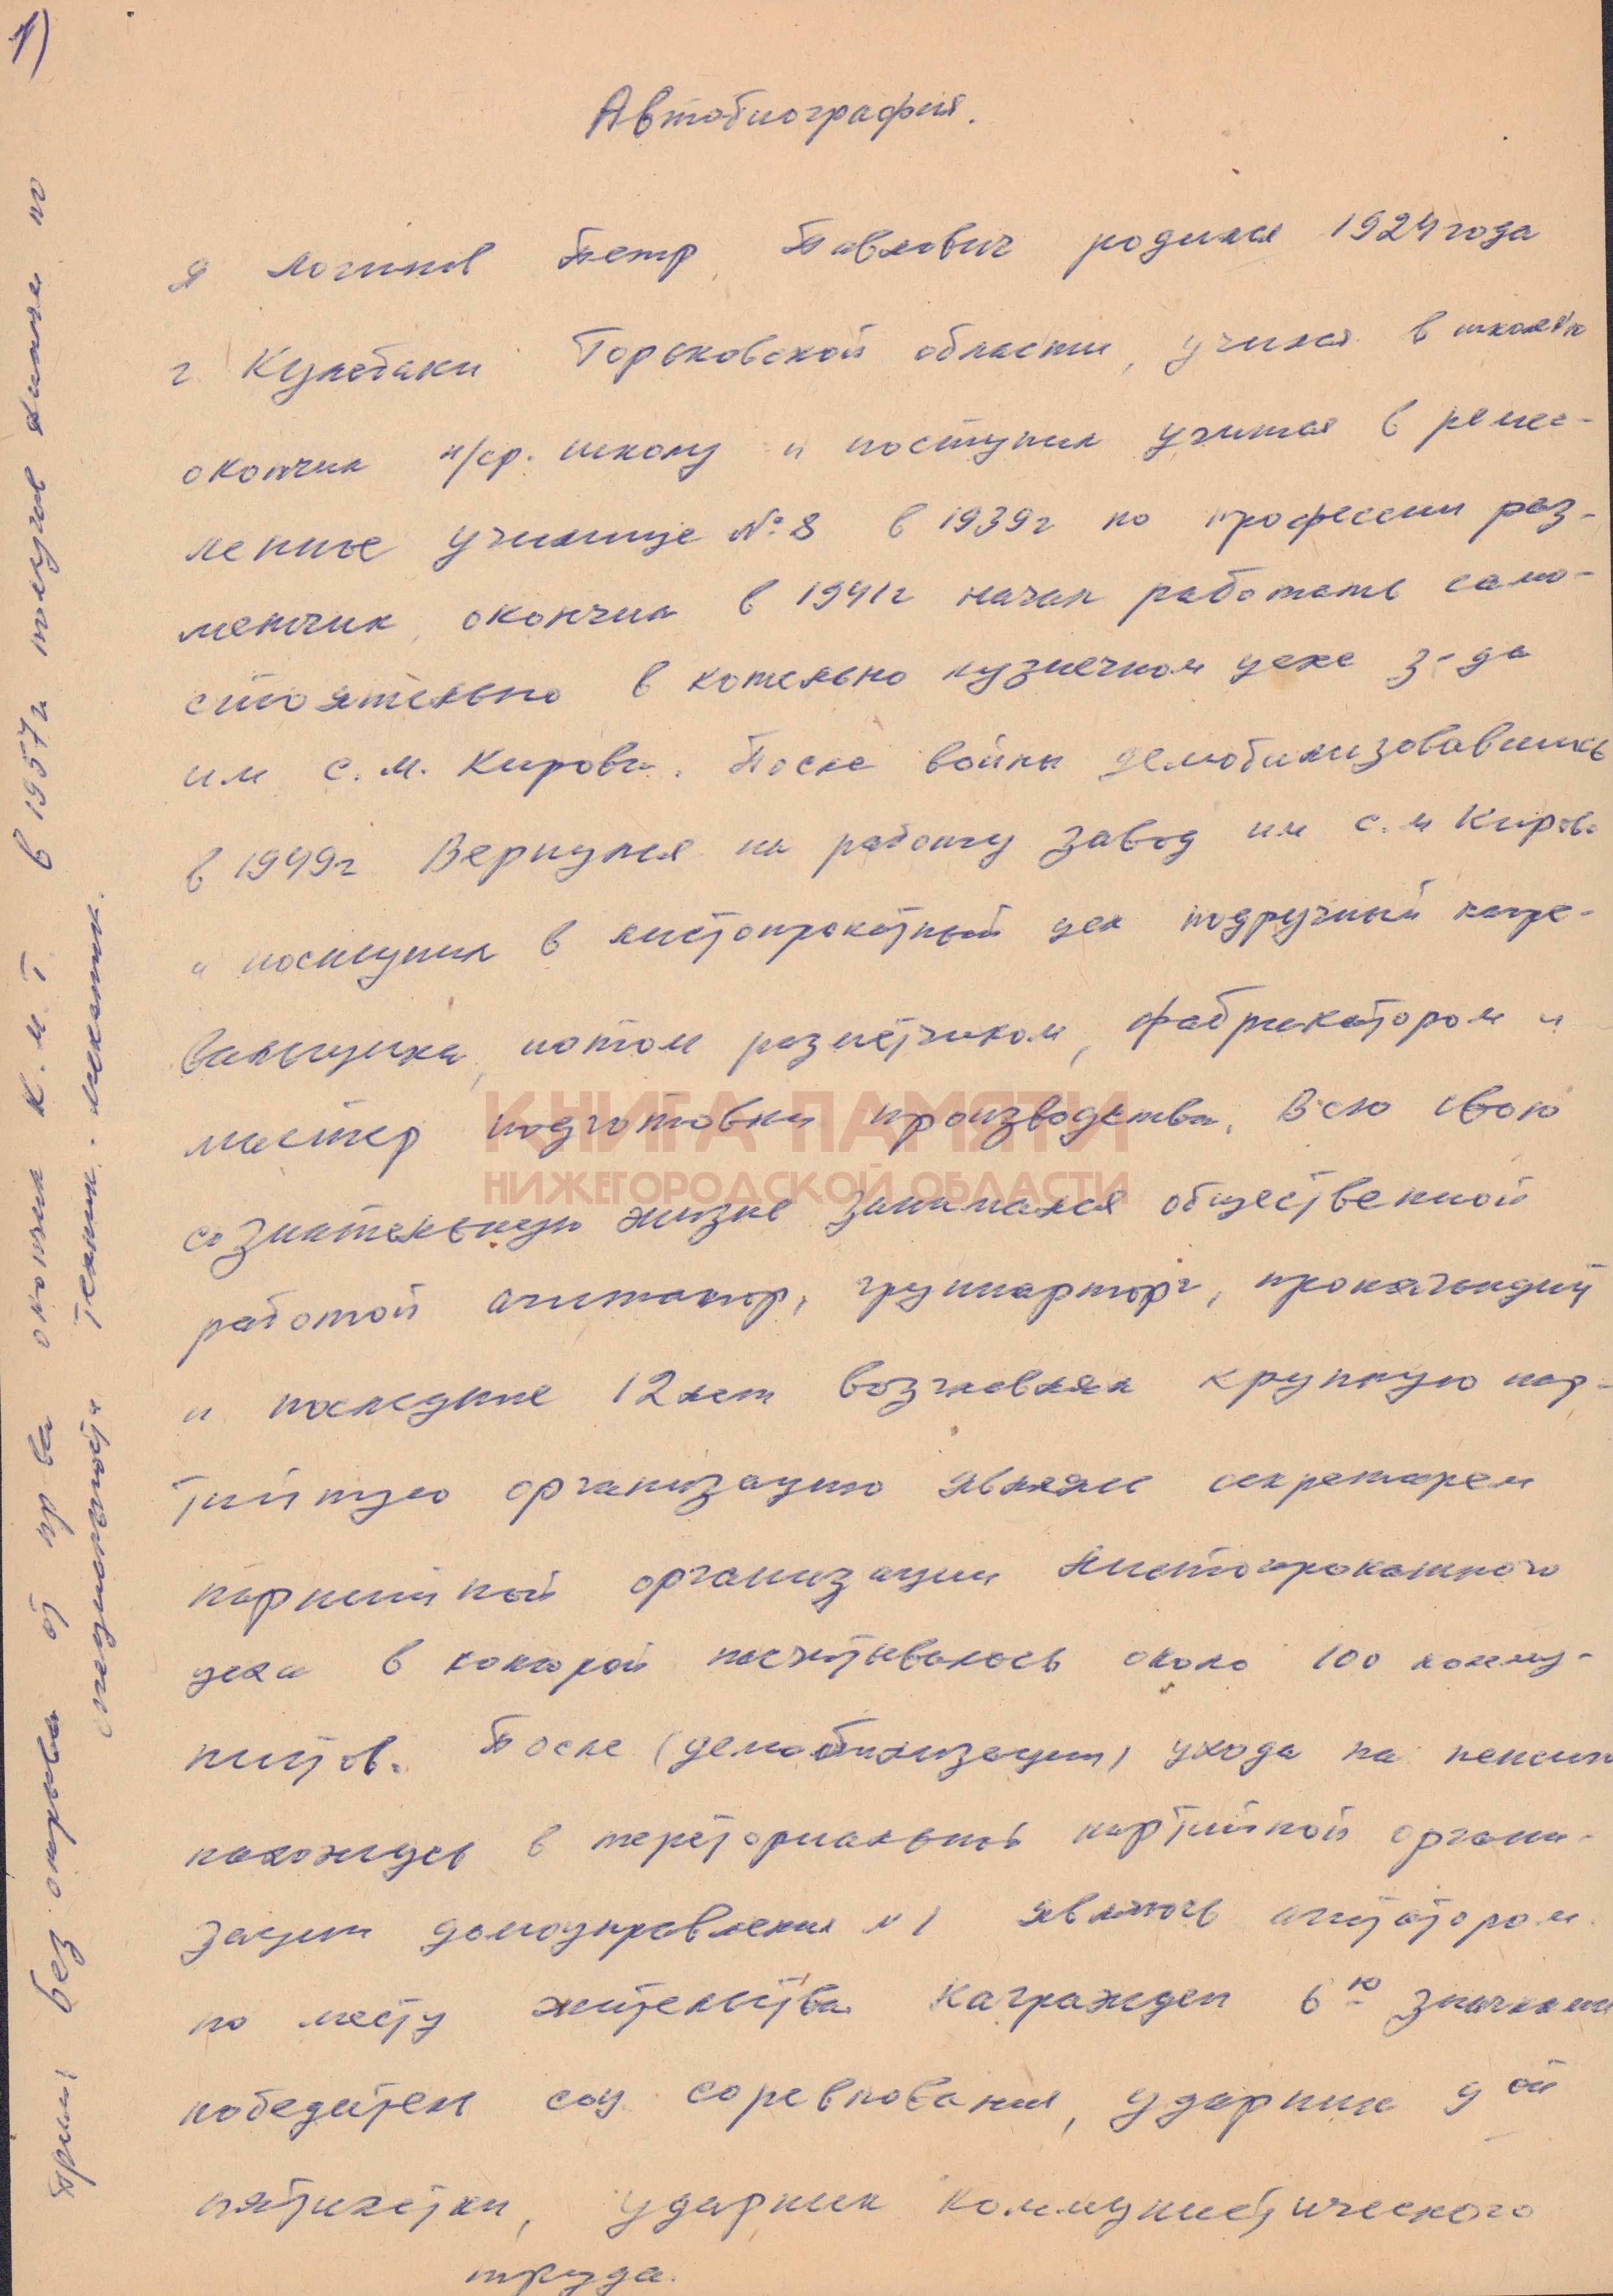 1)
Автобиография.
я Логинов Петр Павлович родился 1924 года
г. Кулебаки Горьковской области, учился в школе №10
окончил н/ср. школу и поступил учится в ремес-
ленное училище №8 в 1939г по профессии раз-
метчик, окончил в 1941г начал работать само-
стоятельно в котельно кузнечном цехе з-да
им С.М. Кирова. После войны демобилизовавшись
в 1949г Вернулся на работу завод им С.М Кирова
и поступил в листопрокатный цех подручный нагре-
вальщика, потом разметчиком, фабрикатором и
мастер подготовки производства. Всю свою
сознательную жизнь занимался общественной
работой агитатор, группарторг,
и последние 12 лет возглавлял крупную пар-
тийную организацию являлся секретарем
партийной организации Листопрокатного
цеха в которой насчитывалось около 100 комму-
нистов. После (демобилизации) ухода на пенсию
нахожусь в территориальной партийной органи-
зации домоуправления №1 являюсь агитатором
по месту жительства. Награжден 6ю значками
победителя соц. соревнования, ударник 9ой
пятилетки, ударник коммунистического
труда.
Прим без отрыва от пр ва окончил К.М.Т в 1957г получив диплом по
специальности техник. механик.
КНИГА ПАМЯТИ
НИЖЕГОРОДСКОЙ ОБЛАСТИ